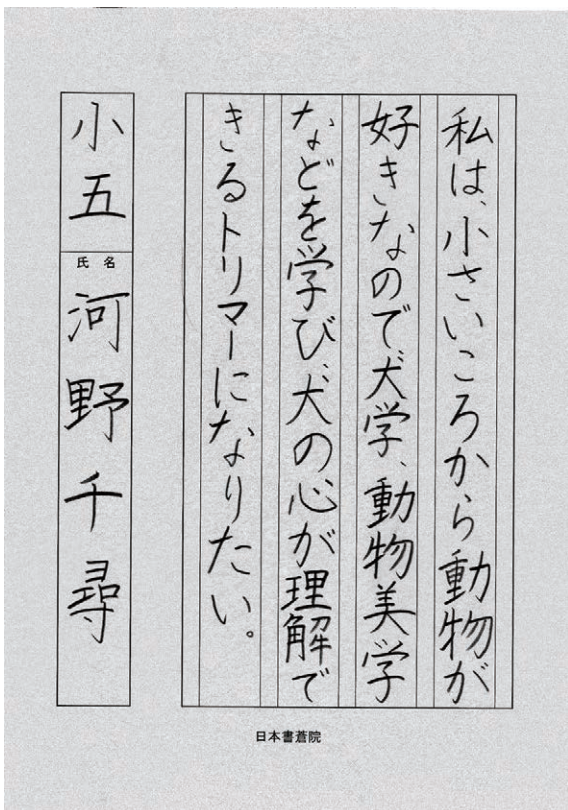 私は、小さいころから動物が
好きなので犬学、動物美学
などを学び、犬の心が理解で
きるトリマーになりたい。
小五
氏名
河野千尋
日本書蒼院